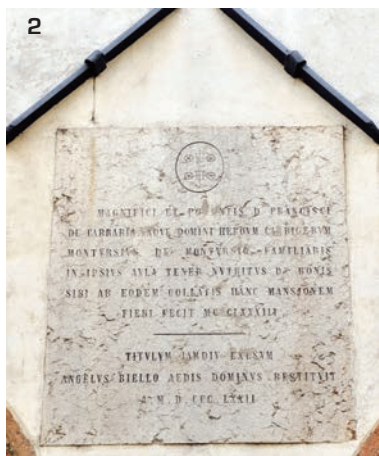 2
MAGNIFICI ET POTENTIS D FRANCISCI
DE CARRARIA
MONTVRSIVS DE MONTVRSIO FAMILIARIS
IN IPSIVS AVLA TENER NVTRITVS DE BONIS
SIBI AB EODEM COLLATIS HANC MANSIONEM
FIERI FECIT
TITVLVM IAMDIV EXESVM
ANGELVS RIELLO AEDIS DOMINVS RESTITVIT
A M D CCC LXXII